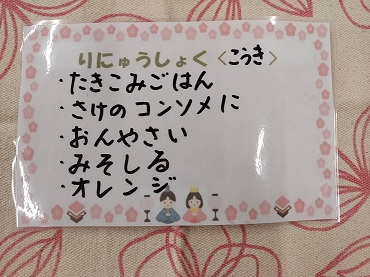 りにゅうしょく〈こうき〉
・たきこみごはん
・さけのコンソメに
・おんやさい
・みそしる
・オレンジ